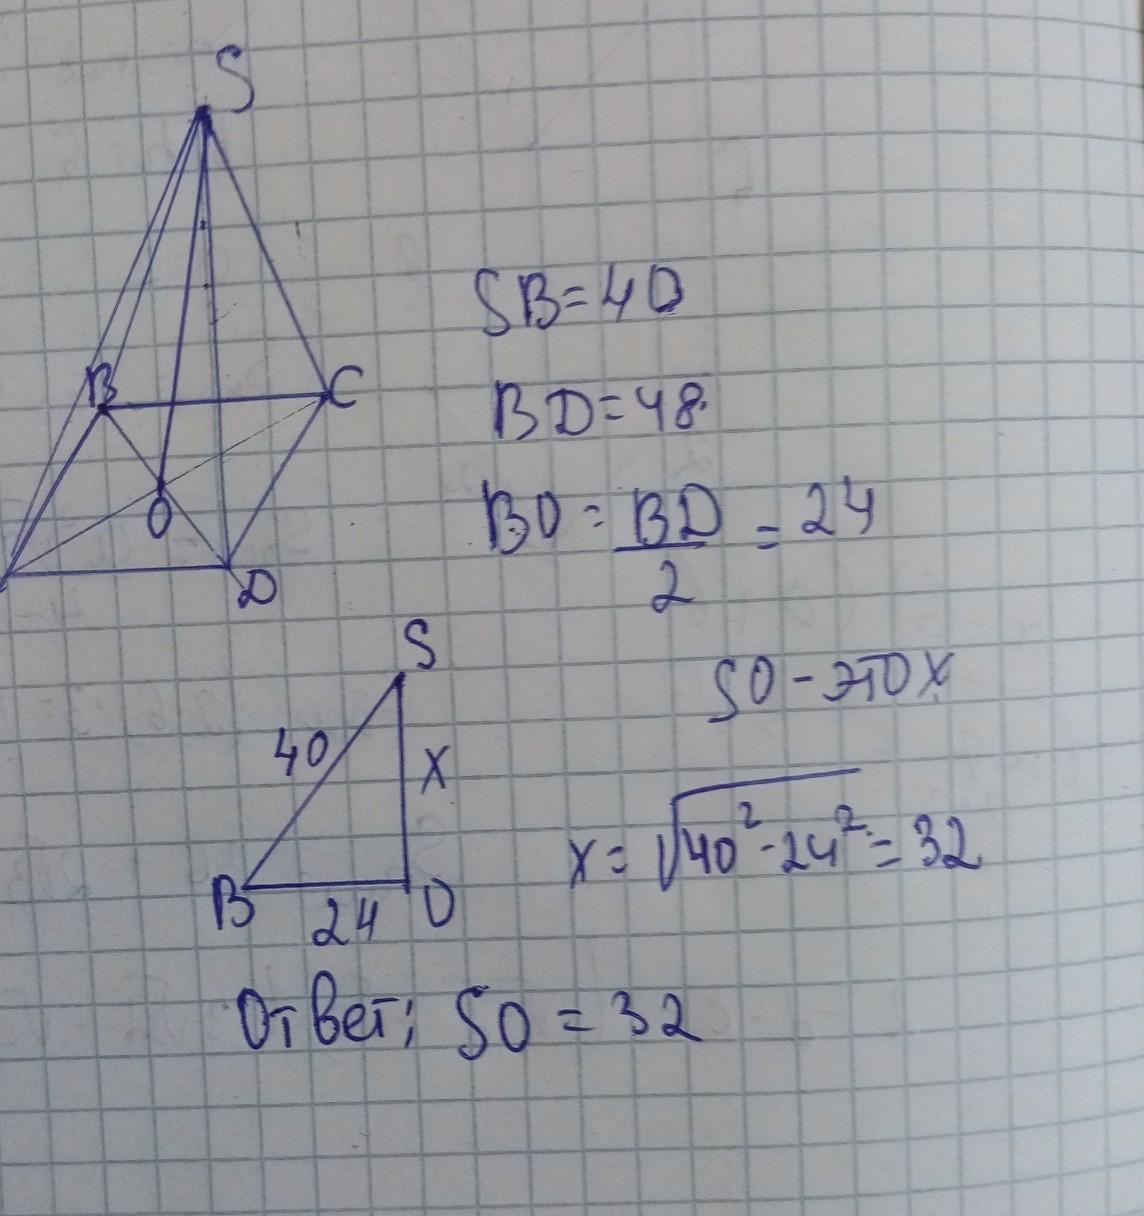 S
B
C
O
D
SB=40
BD=48.
BO = BD/2 = 24
S
40
X
B
24
O
SO - это x
x = √40²-24² = 32
Ответ: SO = 32